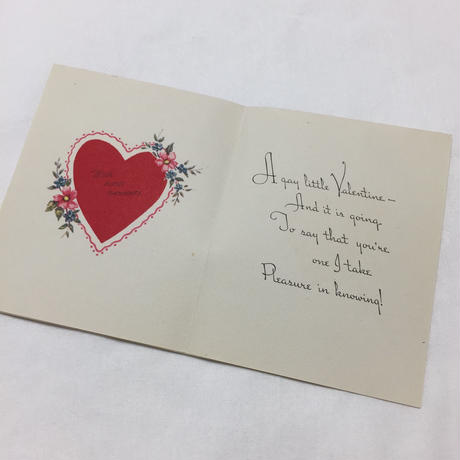 With
A gay little Valentine —
And it is going
To say that you're
one I take
Pleasure in knowing!